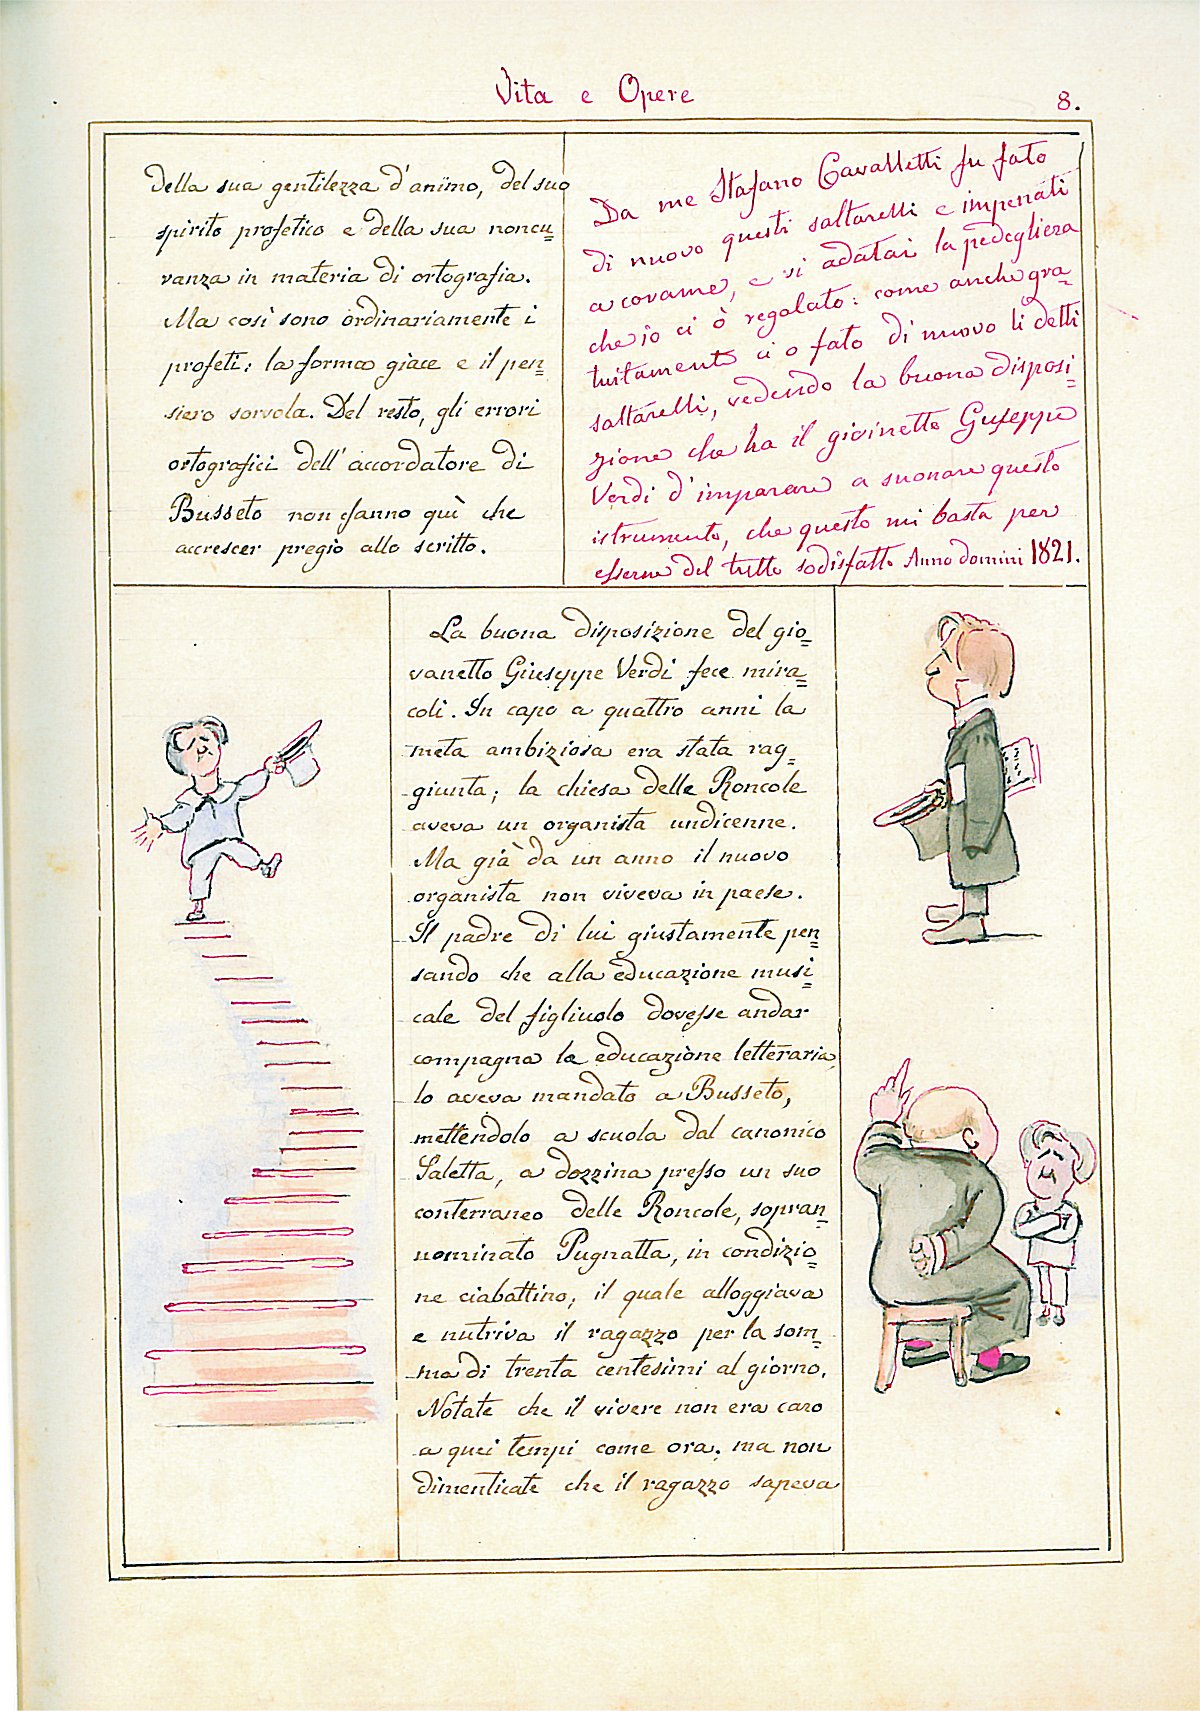 Vita e Opere
8.
della sua gentilezza d'animo, del suo
spirito profetico e della sua noncu=
ranza in materia di ortografia.
Ma così sono ordinariamente i
profeti: la forma giace e il pen=
siero sorvola. Del resto, gli errori
ortografici dell'accordatore di
Busseto non fanno quì che
accrescer pregio allo scritto.
Da me Stafano Cavalletti fu fato
di nuovo questi saltarelli e impenati
a corame, e vi adatai la pedegliera
che io ci ò regalato: come anche gra=
tuitamente ci o fato di nuovo li detti
saltarelli, vedendo la buona disposi=
zione che ha il giovinetto Guseppe
Verdi d'imparare a suonare questo
istrumento, che questo mi basta per
esserne del tutto sodisfatto Anno domini 1821.
La buona disposizione del gio=
vanetto Giuseppe Verdi fece mira=
coli. In capo a quattro anni la
meta ambiziosa era stata rag=
giunta; la chiesa delle Roncole
aveva un organista undicenne.
Ma già da un anno il nuovo
organista non viveva in paese.
Il padre di lui giustamente pen=
sando che alla educazione musi=
cale del figliuolo dovesse andar
compagna la educazione letteraria,
lo aveva mandato a Busseto,
mettendolo a scuola dal canonico
Saletta, a dozzina presso un suo
conterraneo delle Roncole, sopran=
nominato Pugnatta, in condizio=
ne ciabattino, il quale alloggiava
e nutriva il ragazzo per la som=
ma di trenta centesimi al giorno.
Notate che il vivere non era caro
a quei tempi come ora; ma non
dimenticate che il ragazzo sapeva